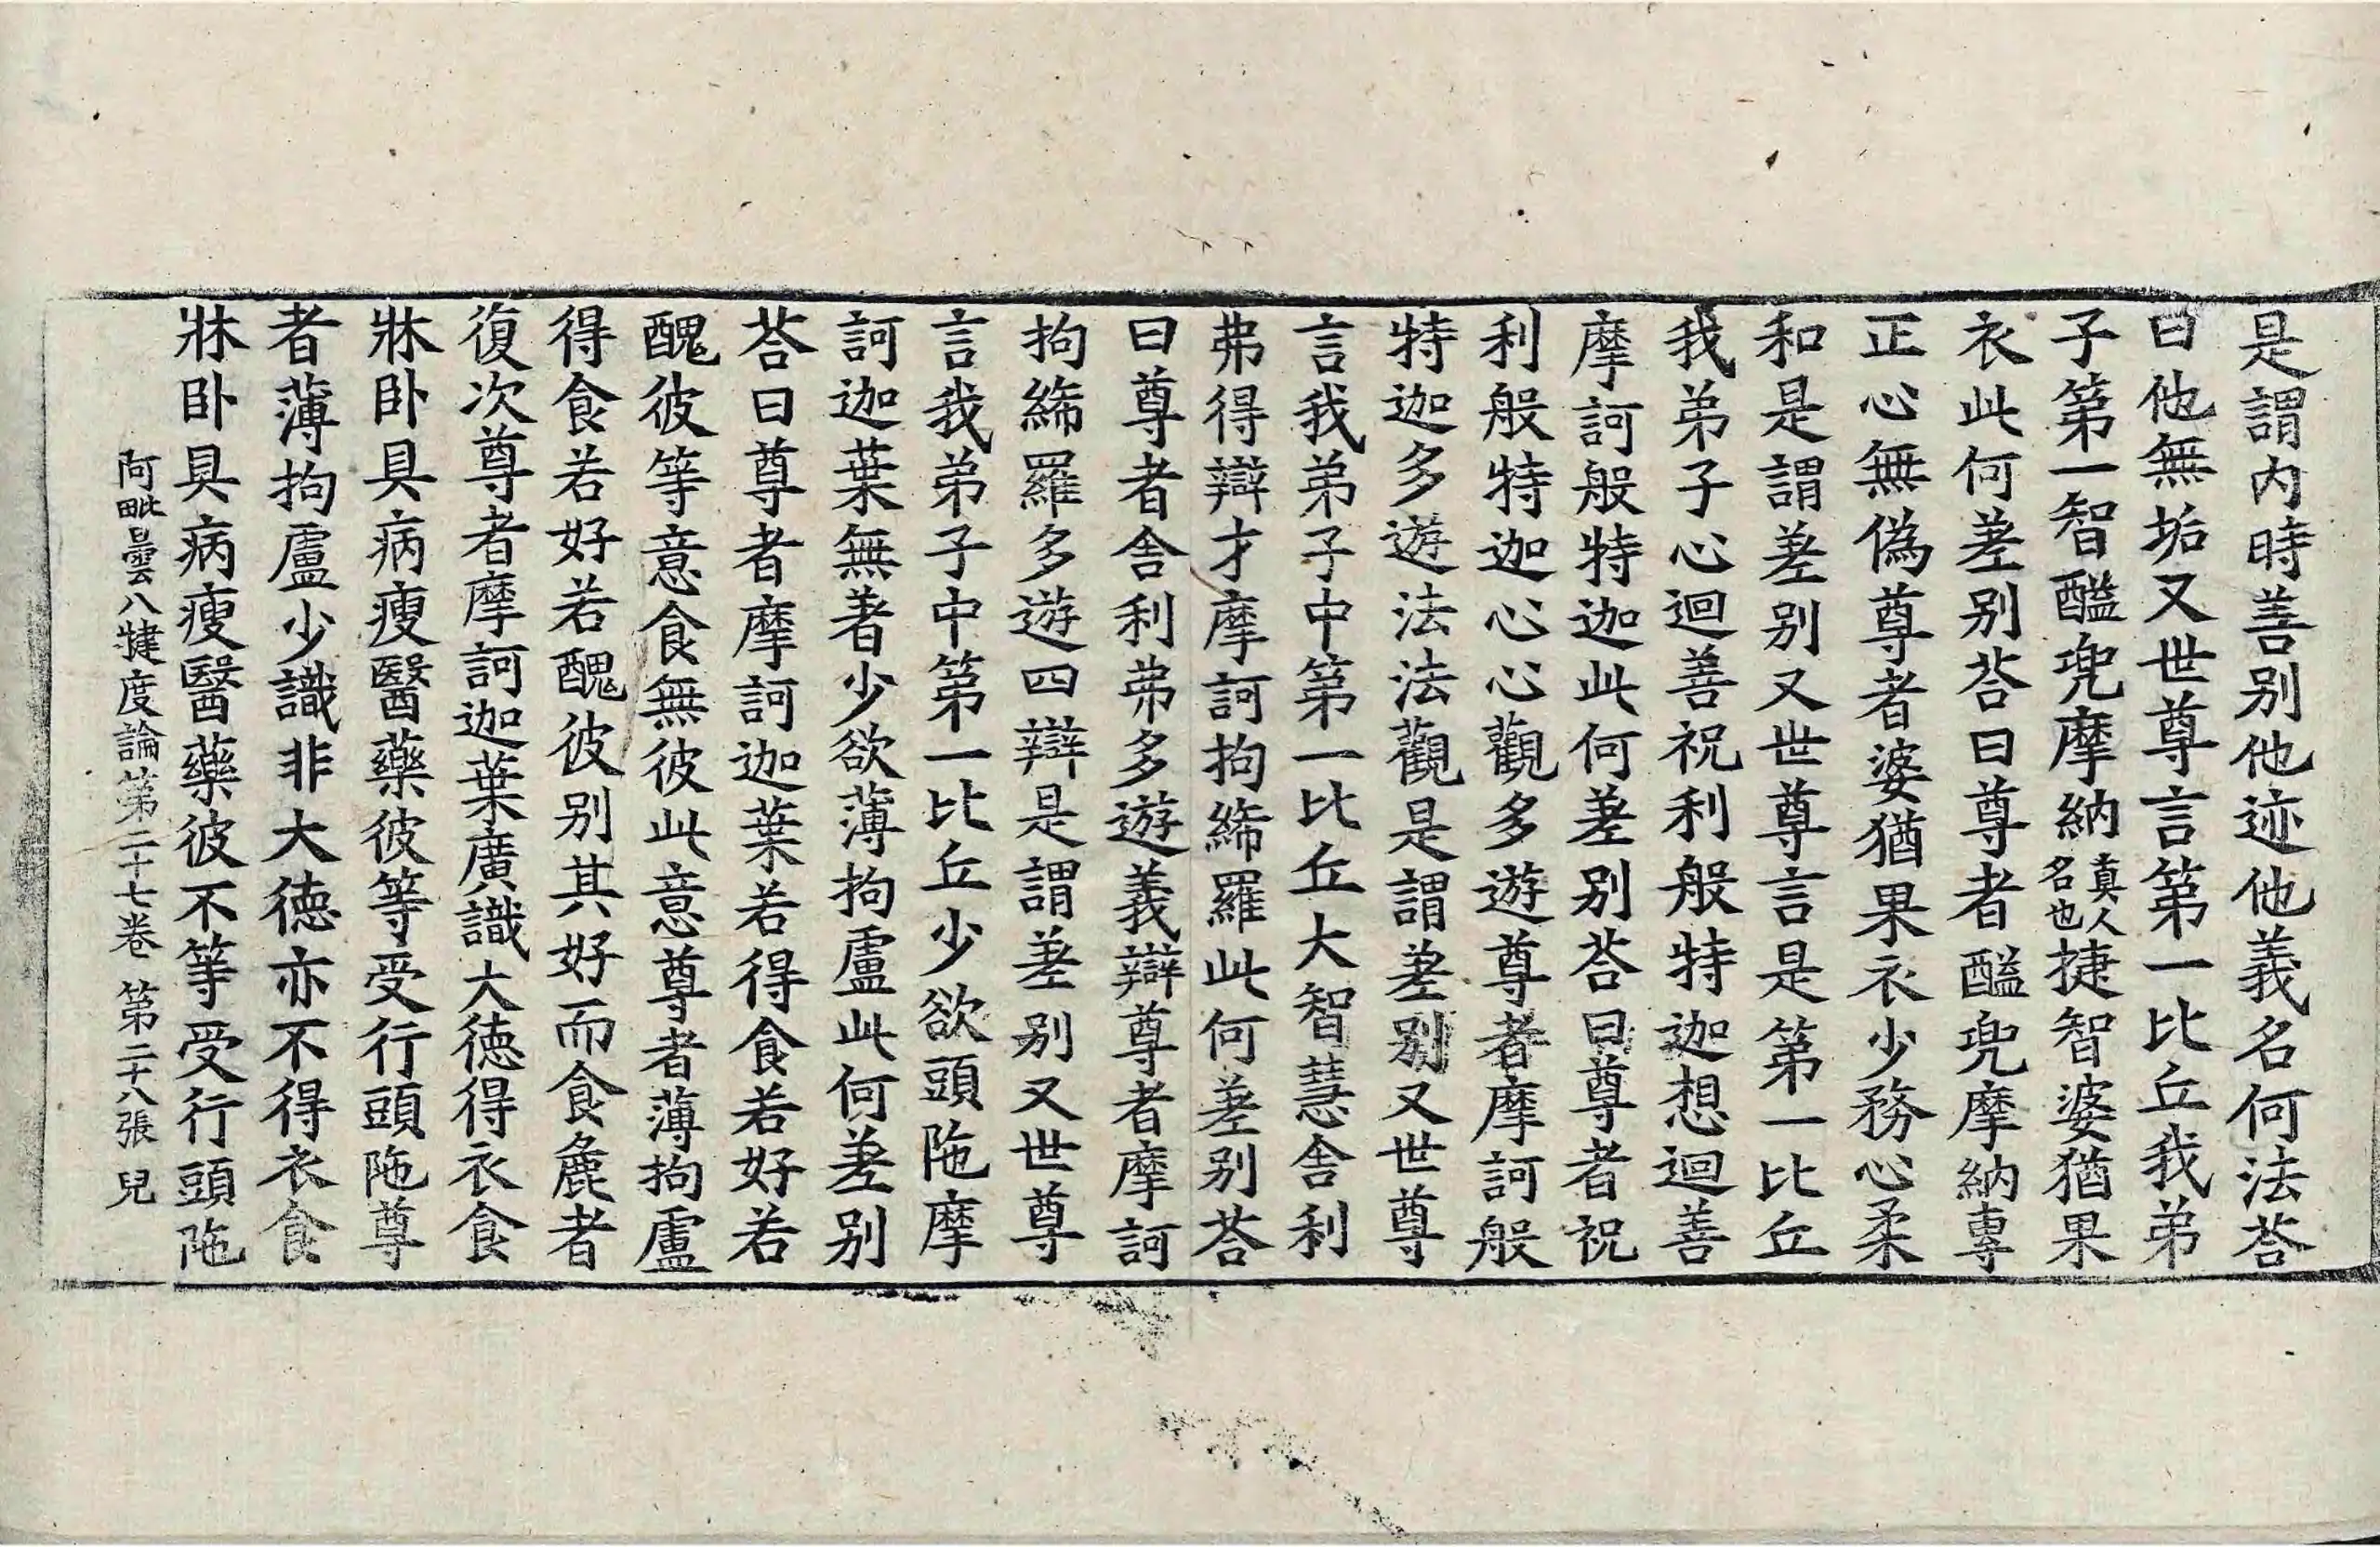 是謂内時善别他迹他義名何法荅
曰他無垢又世尊言第一比丘我弟
子第一智醯兜摩納真人名也捷智婆猶果
衣此何差别荅曰尊者醯兜摩納專
正心無偽尊者婆猶果衣少務心柔
和是謂差别又世尊言是第一比丘
我弟子心迴善祝利般特迦想迴善
摩訶般特迦此何差别荅曰尊者祝
利般特迦心心觀多遊尊者摩訶般
特迦多遊法法觀是謂差别又世尊
言我弟子中第一比丘大智慧舎利
弗得辯才摩訶拘絺羅此何差别荅
曰尊者舎利弗多遊義辯尊者摩訶
拘絺羅多遊四辯是謂差别又世尊
言我弟子中第一比丘少欲頭陁摩
訶迦葉無著少欲薄拘盧此何差别
荅曰尊者摩訶迦葉若得食若好若
醜彼等意食無彼此意尊者薄拘盧
得食若好若醜彼别其好而食麁者
復次尊者摩訶迦葉廣識大德得衣食
牀卧具病瘦醫藥彼等受行頭陁尊
者薄拘盧少識非大德亦不得衣食
牀卧具病瘦醫藥彼不等受行頭陁
阿毗曇八犍度論第二十七卷 第二十八張 兒